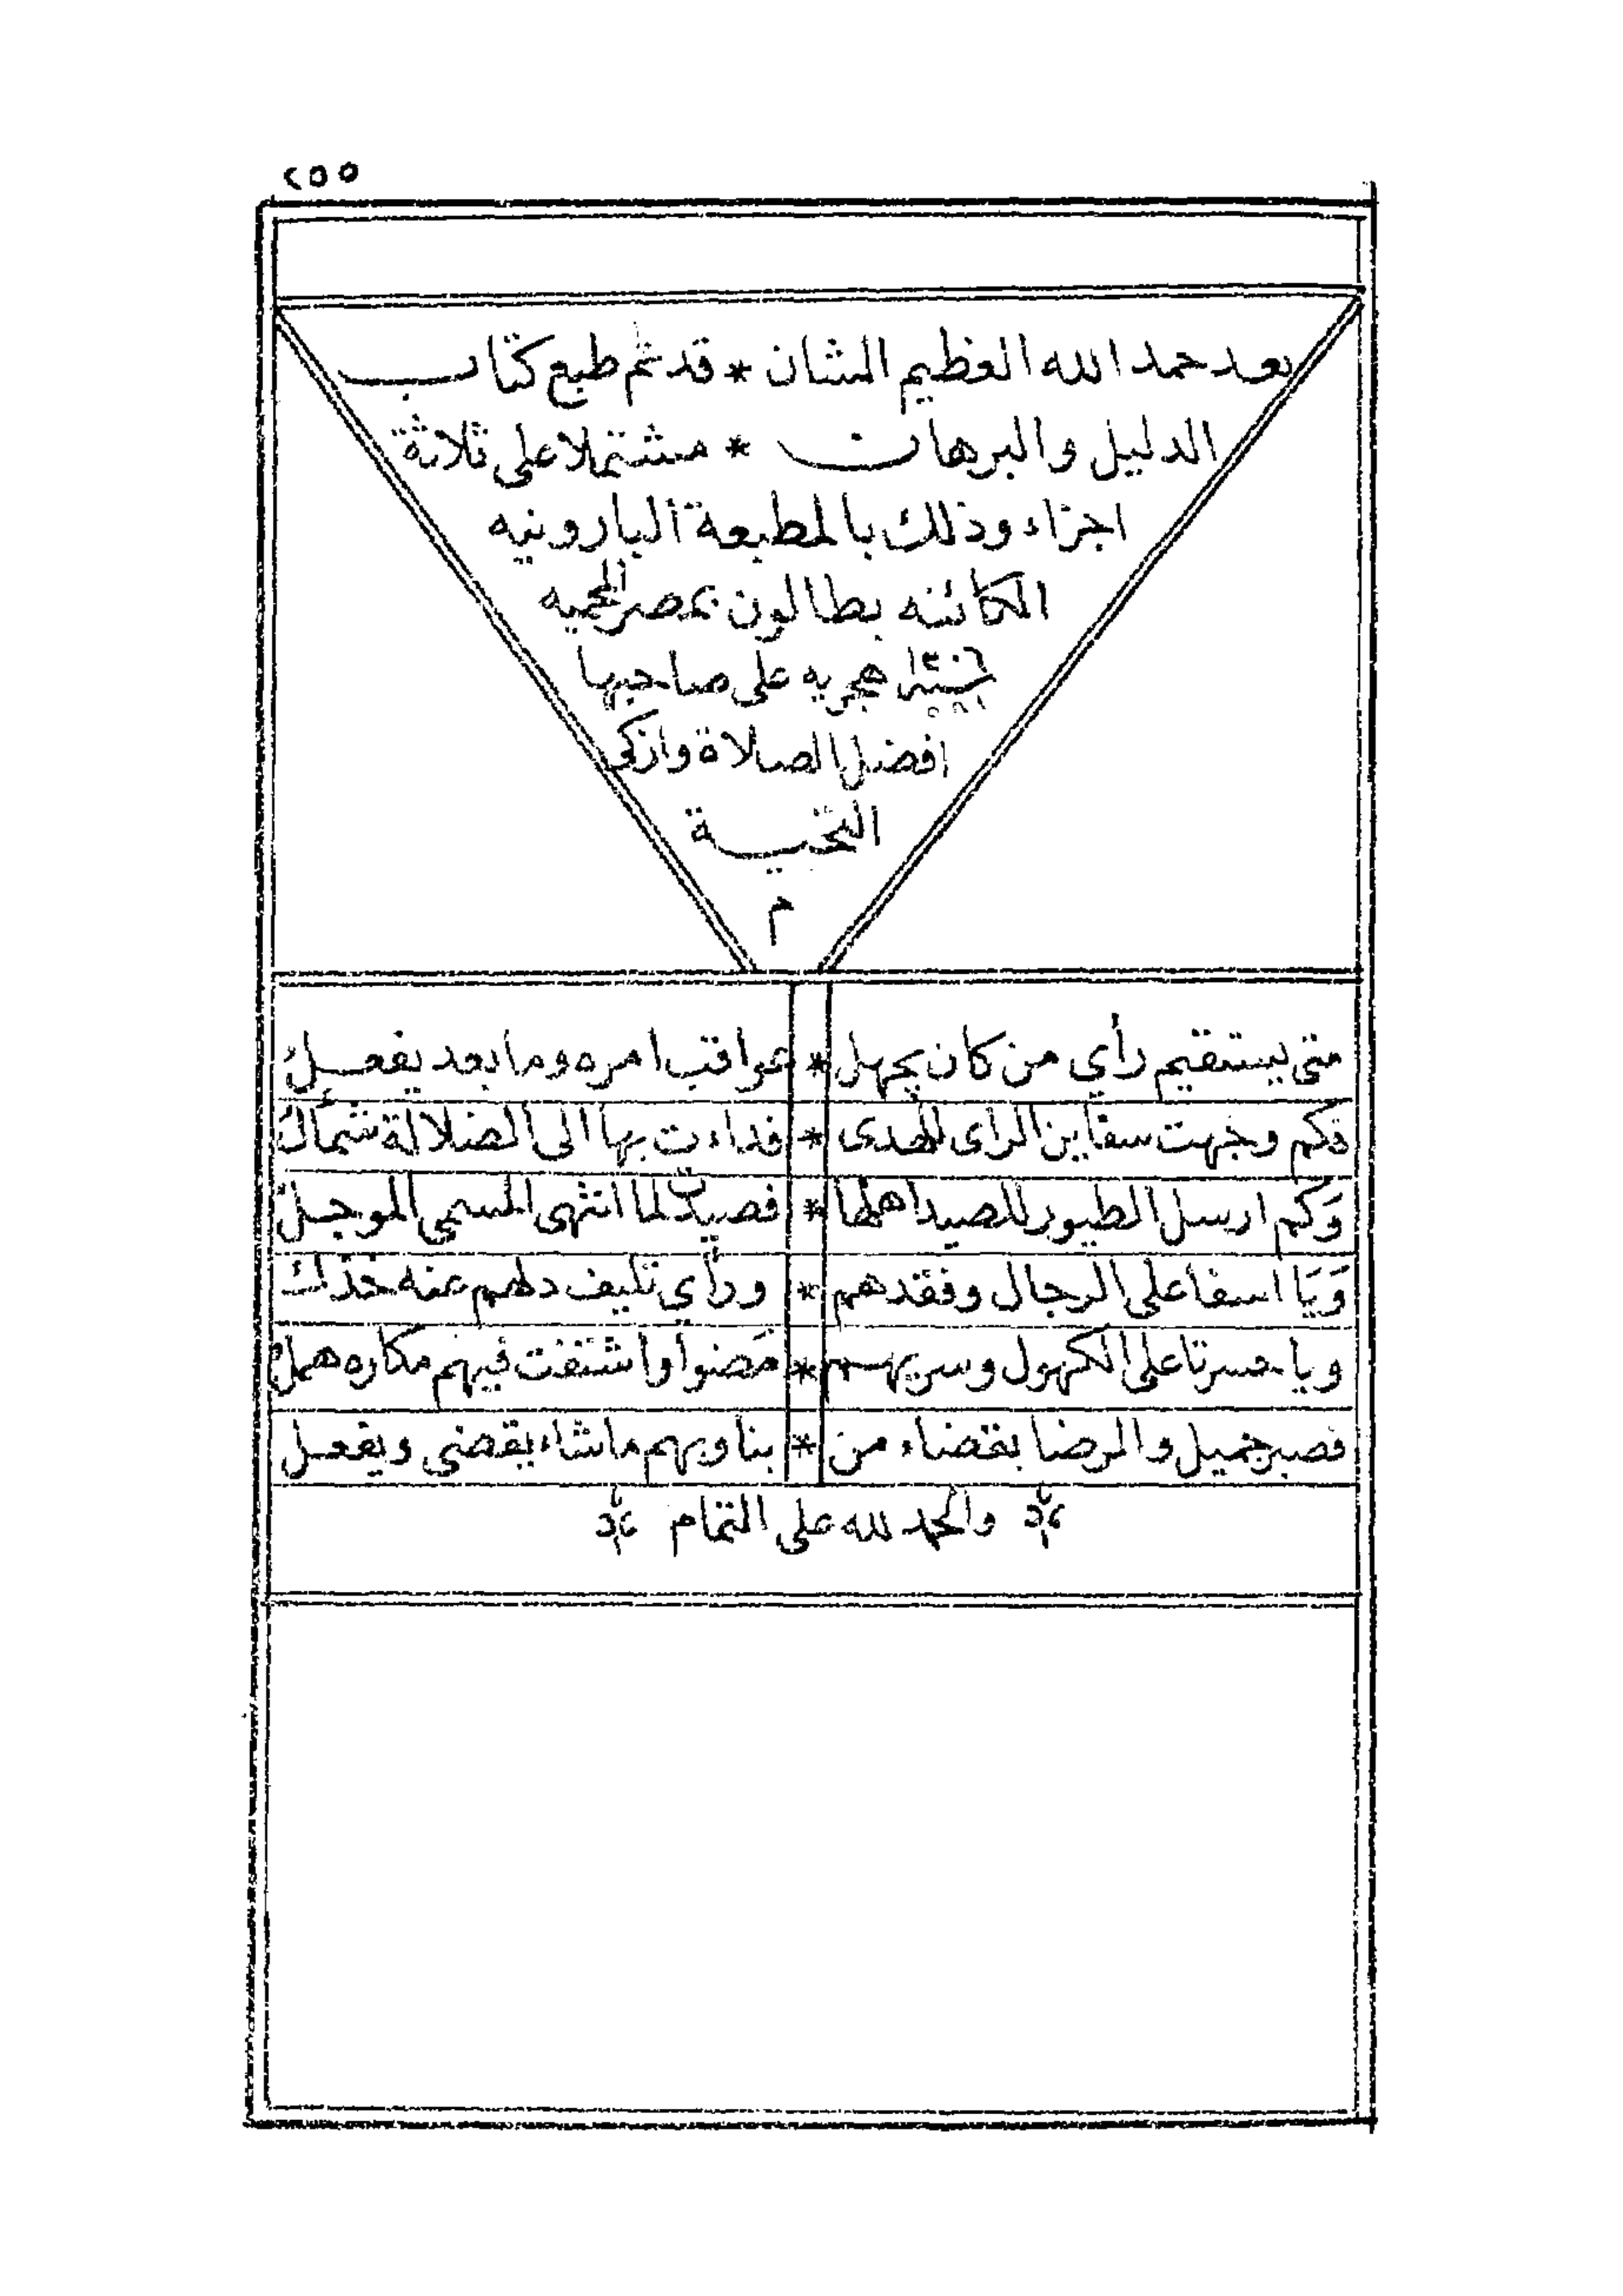 ٢٥٥
بعد حمد الله العظيم الشان * قد تم طبع كتاب
الدليل والبرهان * مشتملا على ثلاثة
اجزاء وذلك بالمطبعة البارونيه
الكائنه بطالون بمصر المحميه
سنة ١٣٠٦ هجريه على صاحبها
افضل الصلاة وازكى
التحية
م
متى يستقيم رأي من كان يجهل * عواقب امره وما بعد يفعل
فكم وجهت سفاين الراى للهدى * فداءت بها الى الضلالة شمأل
وَكم ارسل الطيور للصيد اهلها * فصيدت لما انتهى المسمى الموجل
وَيَا اسفا على الرجال وفقدهم * ورأي تليف دلهم عنه خذل
ويا حسرتا على الكهول وسربهم * مَضوا واشتفت فيهم مكاره همل
فصبر جميل والرضا بقضاء من * بنا وبهم ما شاء يقضى ويفعل
والحمد لله على التمام